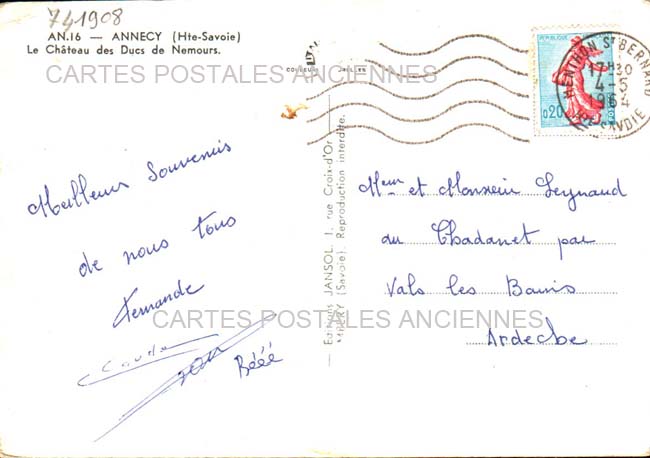 741908
AN.16 — ANNECY (Hte-Savoie)
Le Château des Ducs de Nemours.
CARTES POSTALES ANCIENNES
REPUBLIQUE
0,20
MENTHON ST BERNARD
17H30
4-5
1964
HTE SAVOIE
Meilleurs Souvenirs
de nous tous
Fernande
Claude
Jean
Bééé
Editions JANSOL, 1, rue Croix-d'Or
(Savoie). Reproduction interdite.
Mme et Monsieur Leynaud
au Chadanet par
Vals les Bains
Ardeche
CARTES POSTALES ANCIENNES